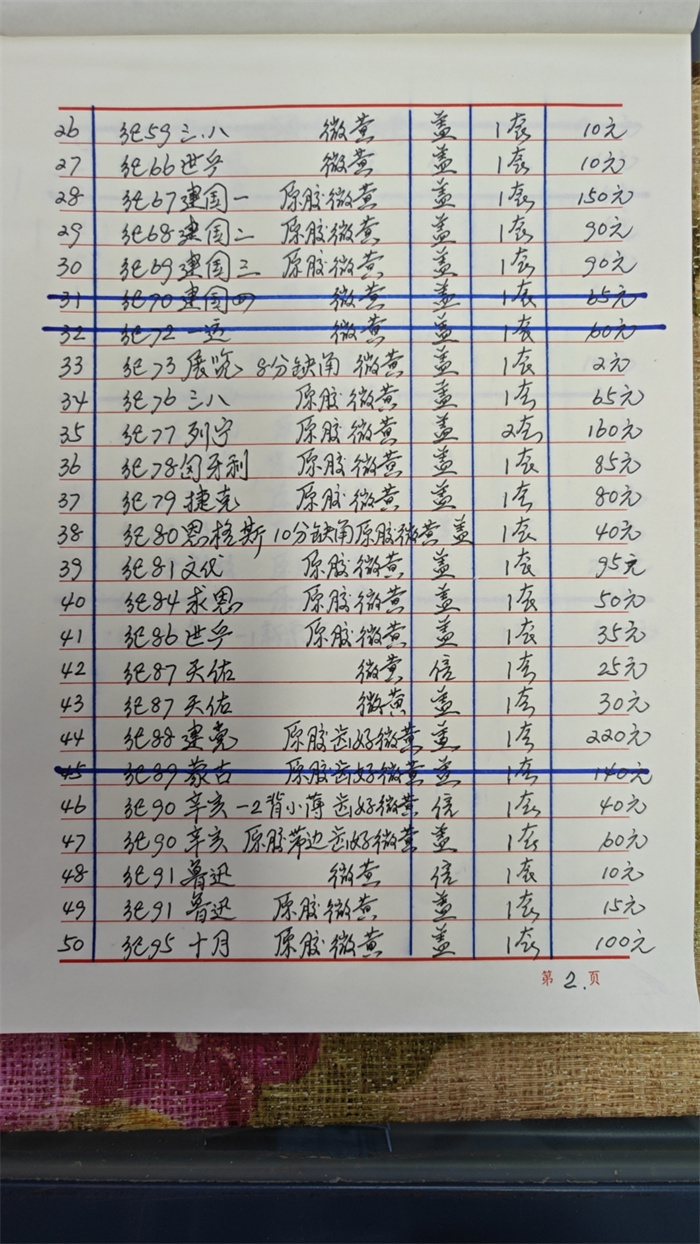 26 纪59三.八 微黄 盖 1套 10元
27 纪66世乒 微黄 盖 1套 10元
28 纪67建国一 原胶微黄 盖 1套 150元
29 纪68建国二 原胶微黄 盖 1套 90元
30 纪69建国三 原胶微黄 盖 1套 90元
31 纪70建国四 微黄 盖 1套 65元
32 纪72一运 微黄 盖 1套 60元
33 纪73展览 8分缺角 微黄 盖 1套 2元
34 纪76三八 原胶微黄 盖 1套 65元
35 纪77列宁 原胶微黄 盖 2套 160元
36 纪78匈牙利 原胶微黄 盖 1套 85元
37 纪79捷克 原胶微黄 盖 1套 80元
38 纪80恩格斯 10分缺角原胶微黄 盖 1套 40元
39 纪81文代 原胶微黄 盖 1套 95元
40 纪84求恩 原胶微黄 盖 1套 50元
41 纪86世乒 原胶微黄 盖 1套 35元
42 纪87天佑 微黄 信 1套 25元
43 纪87天佑 微黄 盖 1套 30元
44 纪88建党 原胶齿好微黄 盖 1套 220元
45 纪89蒙古 原胶齿好微黄 盖 1套 140元
46 纪90辛亥-2背小薄 齿好微黄 信 1套 40元
47 纪90辛亥 原胶带边齿好微黄 盖 1套 60元
48 纪91鲁迅 微黄 信 1套 10元
49 纪91鲁迅 原胶微黄 盖 1套 15元
50 纪95十月 原胶微黄 盖 1套 100元
第 2. 页